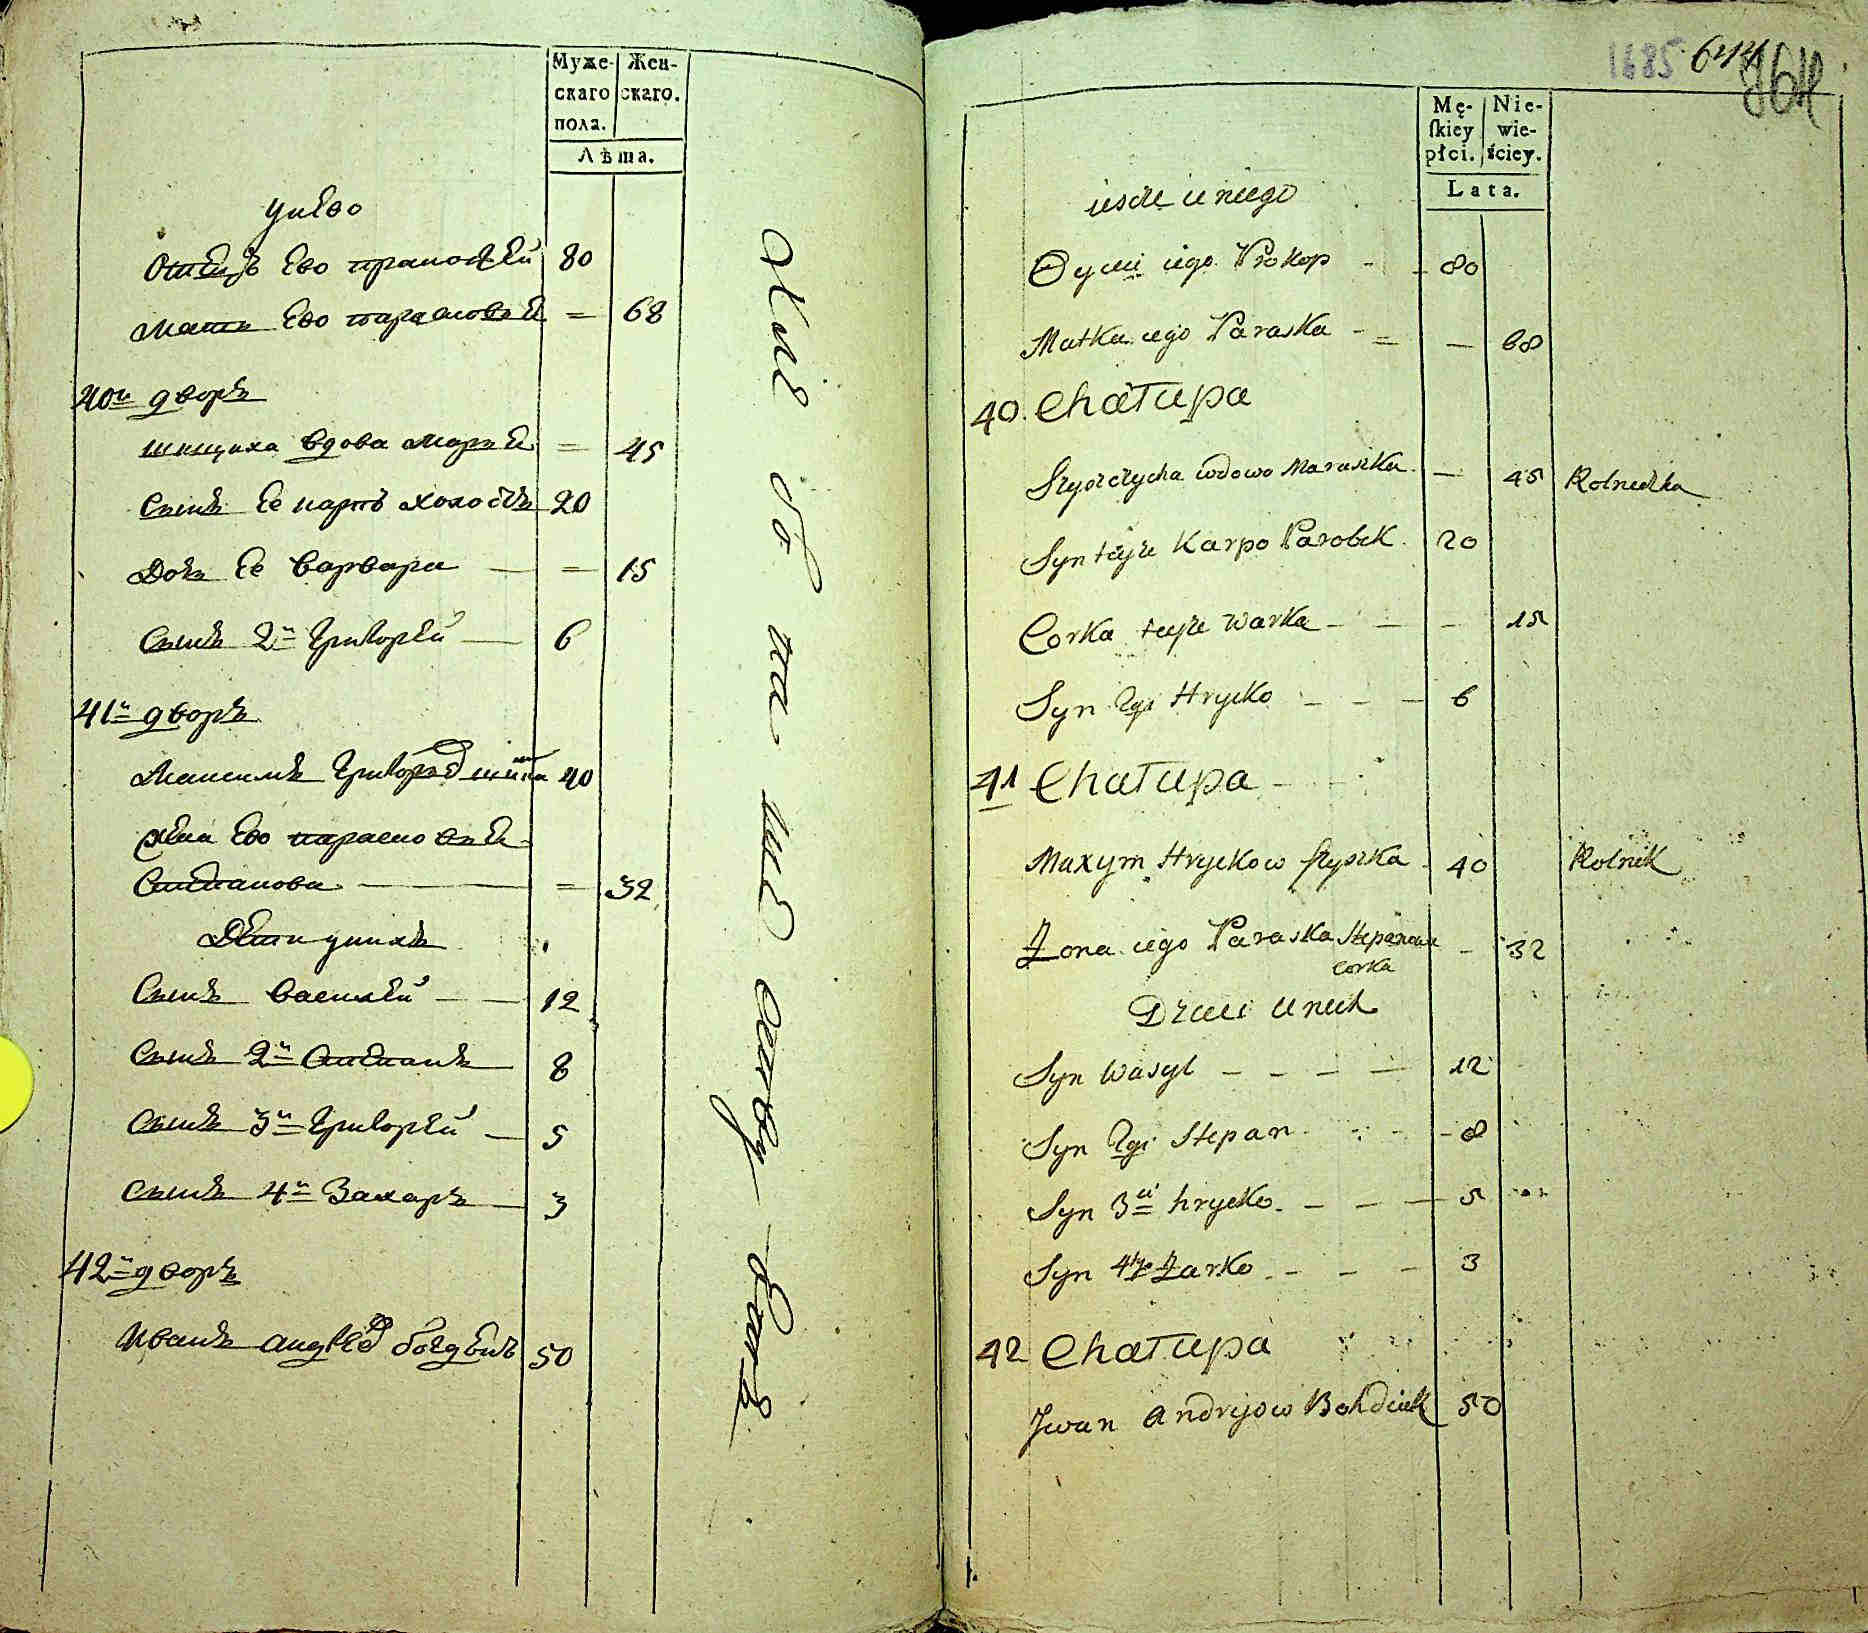 Муже-
скаго
пола.
Жен-
скаго.
Лѣта.
У него
Отецъ Ево прокофей 80
Мать Ево парасковея = 68
40й дворъ
вдова Марья = 45
Сынъ Ее карпъ холостъ 20
Дочь Ее варвара = 15
Сынъ 2й Григорей 6
41й дворъ
Максимъ Григорьевъ 40
Жена Ево парасковея
Степанова = 32
Дети у нихъ
Сынъ василей 12
Сынъ 2й Степанъ 8
Сынъ 3й Григорей 5
Сынъ 4й Захаръ 3
42й дворъ
Иванъ андреевъ 50
1685 644
Mę-
ſkiey
płci.
Nie-
wie-
ściey.
Lata.
ieszcze u niego
Oyciec iego Prokop - - 80
Matka iego Paraska - = — 68
40. Chałupa
wdowa Maruszka — 45 Rolniczka
Syn teyże Karpo Parobek 20
Corka teyże Warka - - - 15
Syn 2gi Hrycko - - - 6
41 Chałupa
Maxym Hryckow Szyszka 40 Rolnik
Żona iego Paraska Stepanowa - 32
corka
Dzieci u nich
Syn Wasyl - - - - 12
Syn 2gi Stepan - 8
Syn 3ci hrycko - - - 5
Syn 4ty Zarko - - - 3
42 Chałupa
Jwan Andryiow Bohdiuk 50